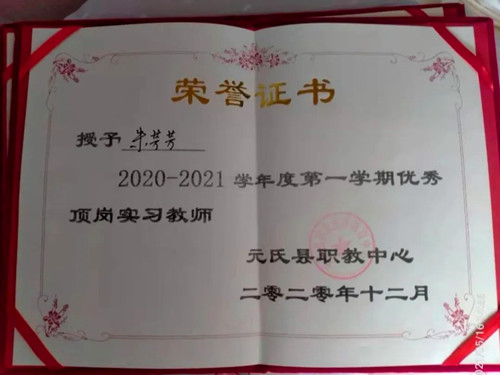 荣誉证书
授予 朱芳芳
2020-2021 学年度第一学期优秀
顶岗实习教师
元氏县职教中心
二零二零年十二月